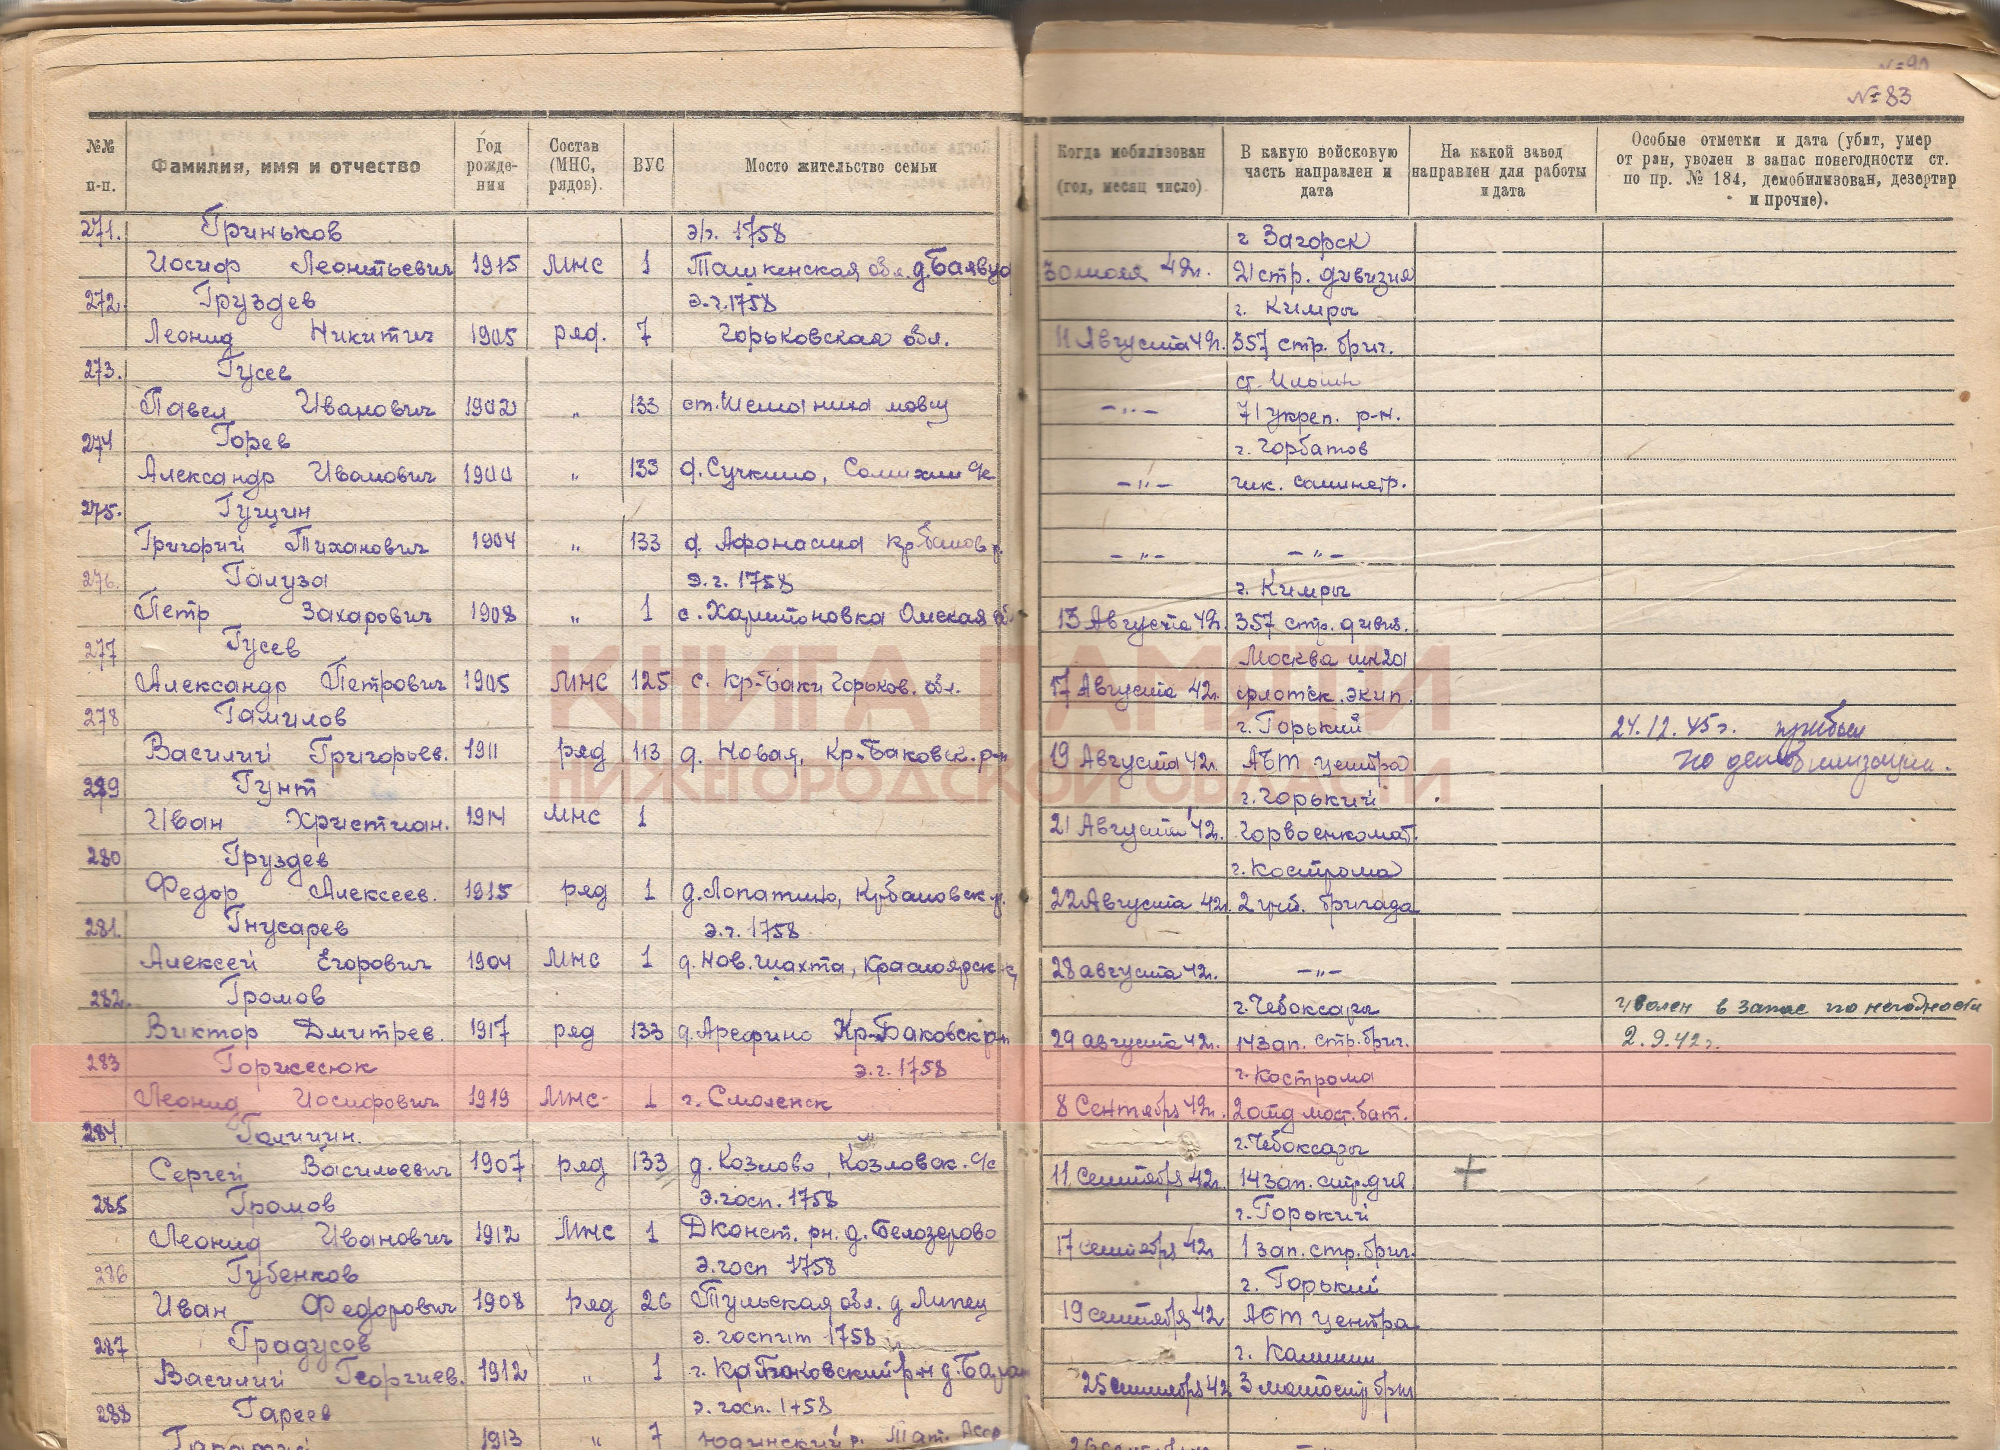 № 83
№№ п-п. Фамилия, имя и отчество Год рождения Состав (МНС, рядов). ВУС Мосто жительство семьи Когда мобилизован (год, месяц число). В какую войсковую часть направлен и дата На какой завод направлен для работы и дата Особые отметки и дата (убит, умер от ран, уволен в запас понегодности ст. по пр. № 184, демобилизован, дезертир и прочие).
271. Гриньков э/г. 1758 г Загорск
Иосиф Леонтьевич 1915 МНС 1 Ташкенская обл. д. 42г. 21 стр. дивизия
272. Груздев э.г. 1758 г. Кимры
Леонид Никитич 1905 ряд. 7 Горьковская обл. 11 Августа 42г. 357 стр. бриг.
273. Гусев ст.
Павел Иванович 1902 " 133 ст. -"- 71 укреп. р-н.
274 Горев г. Горбатов
Александр Иванович 1900 " 133 д. Сучкино, -"-
275. Гущин
Григорий Тиханович 1904 " 133 д. -"- -"-
276. Галуза э.г. 1758 г. Кимры
Петр Захарович 1908 " 1 с. Харитоновка Омская 13 Августа 42г. 357 стр. дивиз.
277 Гусев Москва
Александр Петрович 1905 МНС 125 с. Кр-Баки Горьков. обл. 17 Августа 42г. флотск. экип.
278 Гамилов г. Горький 24.12.45г. прибыл
Василий Григорьев. 1911 ряд 113 д. Новая, Кр-Баковск. р-н 19 Августа 42г. АБТ центра по демобилизации.
279 Гунт г. Горький
Иван Христиан. 1914 МНС 1 21 Августа 42г. Горвоенкомат.
280 Груздев г. Кострома
Федор Алексеев. 1915 ряд 1 д. Лопатино, 22 Августа 42г. 2 бригада
281. Гнусарев э.г. 1758
Алексей Егорович 1904 МНС 1 д. Нов. шахта, 28 августа 42г. -"-
282. Громов г. Чебоксары уволен в запас по негодности
Виктор Дмитрев. 1917 ряд 133 д. Арефино Кр-Баковск р-н 29 августа 42г. 14 зап. стр. бриг. 2.9.42г.
283 э.г. 1758 г. Кострома
Леонид Иосифович 1919 МНС- 1 г. Смоленск 8 Сентября 42г. 2 отд мост. бат.
284. Галицин. г. Чебоксары
Сергей Васильевич 1907 ряд 133 д. Козлово, Козловск. с/с 11 сентября 42г. 14 зап. стр. див +
285 Громов э.госп. 1758 г. Горький
Леонид Иванович 1912 МНС 1 Дконст. рн. д. Белозерово 17 сентября 42г 1 зап. стр. бриг.
286 Губенков э.госп 1758 г. Горький
Иван Федорович 1908 ряд 26 Тульская обл. д Липец 19 сентября 42 АБТ центра
287 Градусов э. госпит 1758 г. Калинин
Василий Георгиев. 1912 " 1 г. КрБаковский р-н д. 25 сентября 42
288 Гареев э. госп. 1758
1913 " 7 р. Тат. Асср
КНИГА ПАМЯТИ
НИЖЕГОРОДСКОЙ ОБЛАСТИ